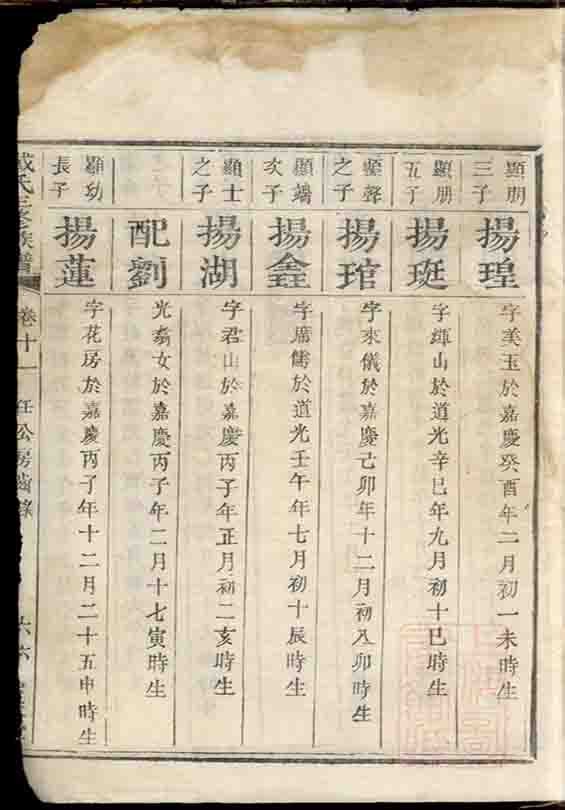 顯朋三子
揚瑝
字美玉於嘉慶癸酉年二月初一未時生
顯朋五子
揚珽
字輝山於道光辛巳年九月初十巳時生
顯聲之子
揚琯
字來儀於嘉慶己卯年十二月初八卯時生
顯端次子
揚鑫
字席儒於道光壬午年七月初十辰時生
顯士之子
揚湖
字君山於嘉慶丙子年正月初二亥時生
配劉
光裔女於嘉慶丙子年二月十七寅時生
顯幼長子
揚蓮
字花房於嘉慶丙子年十二月二十五申時生
氏三修族譜
卷十一
任公房齒錄
六六